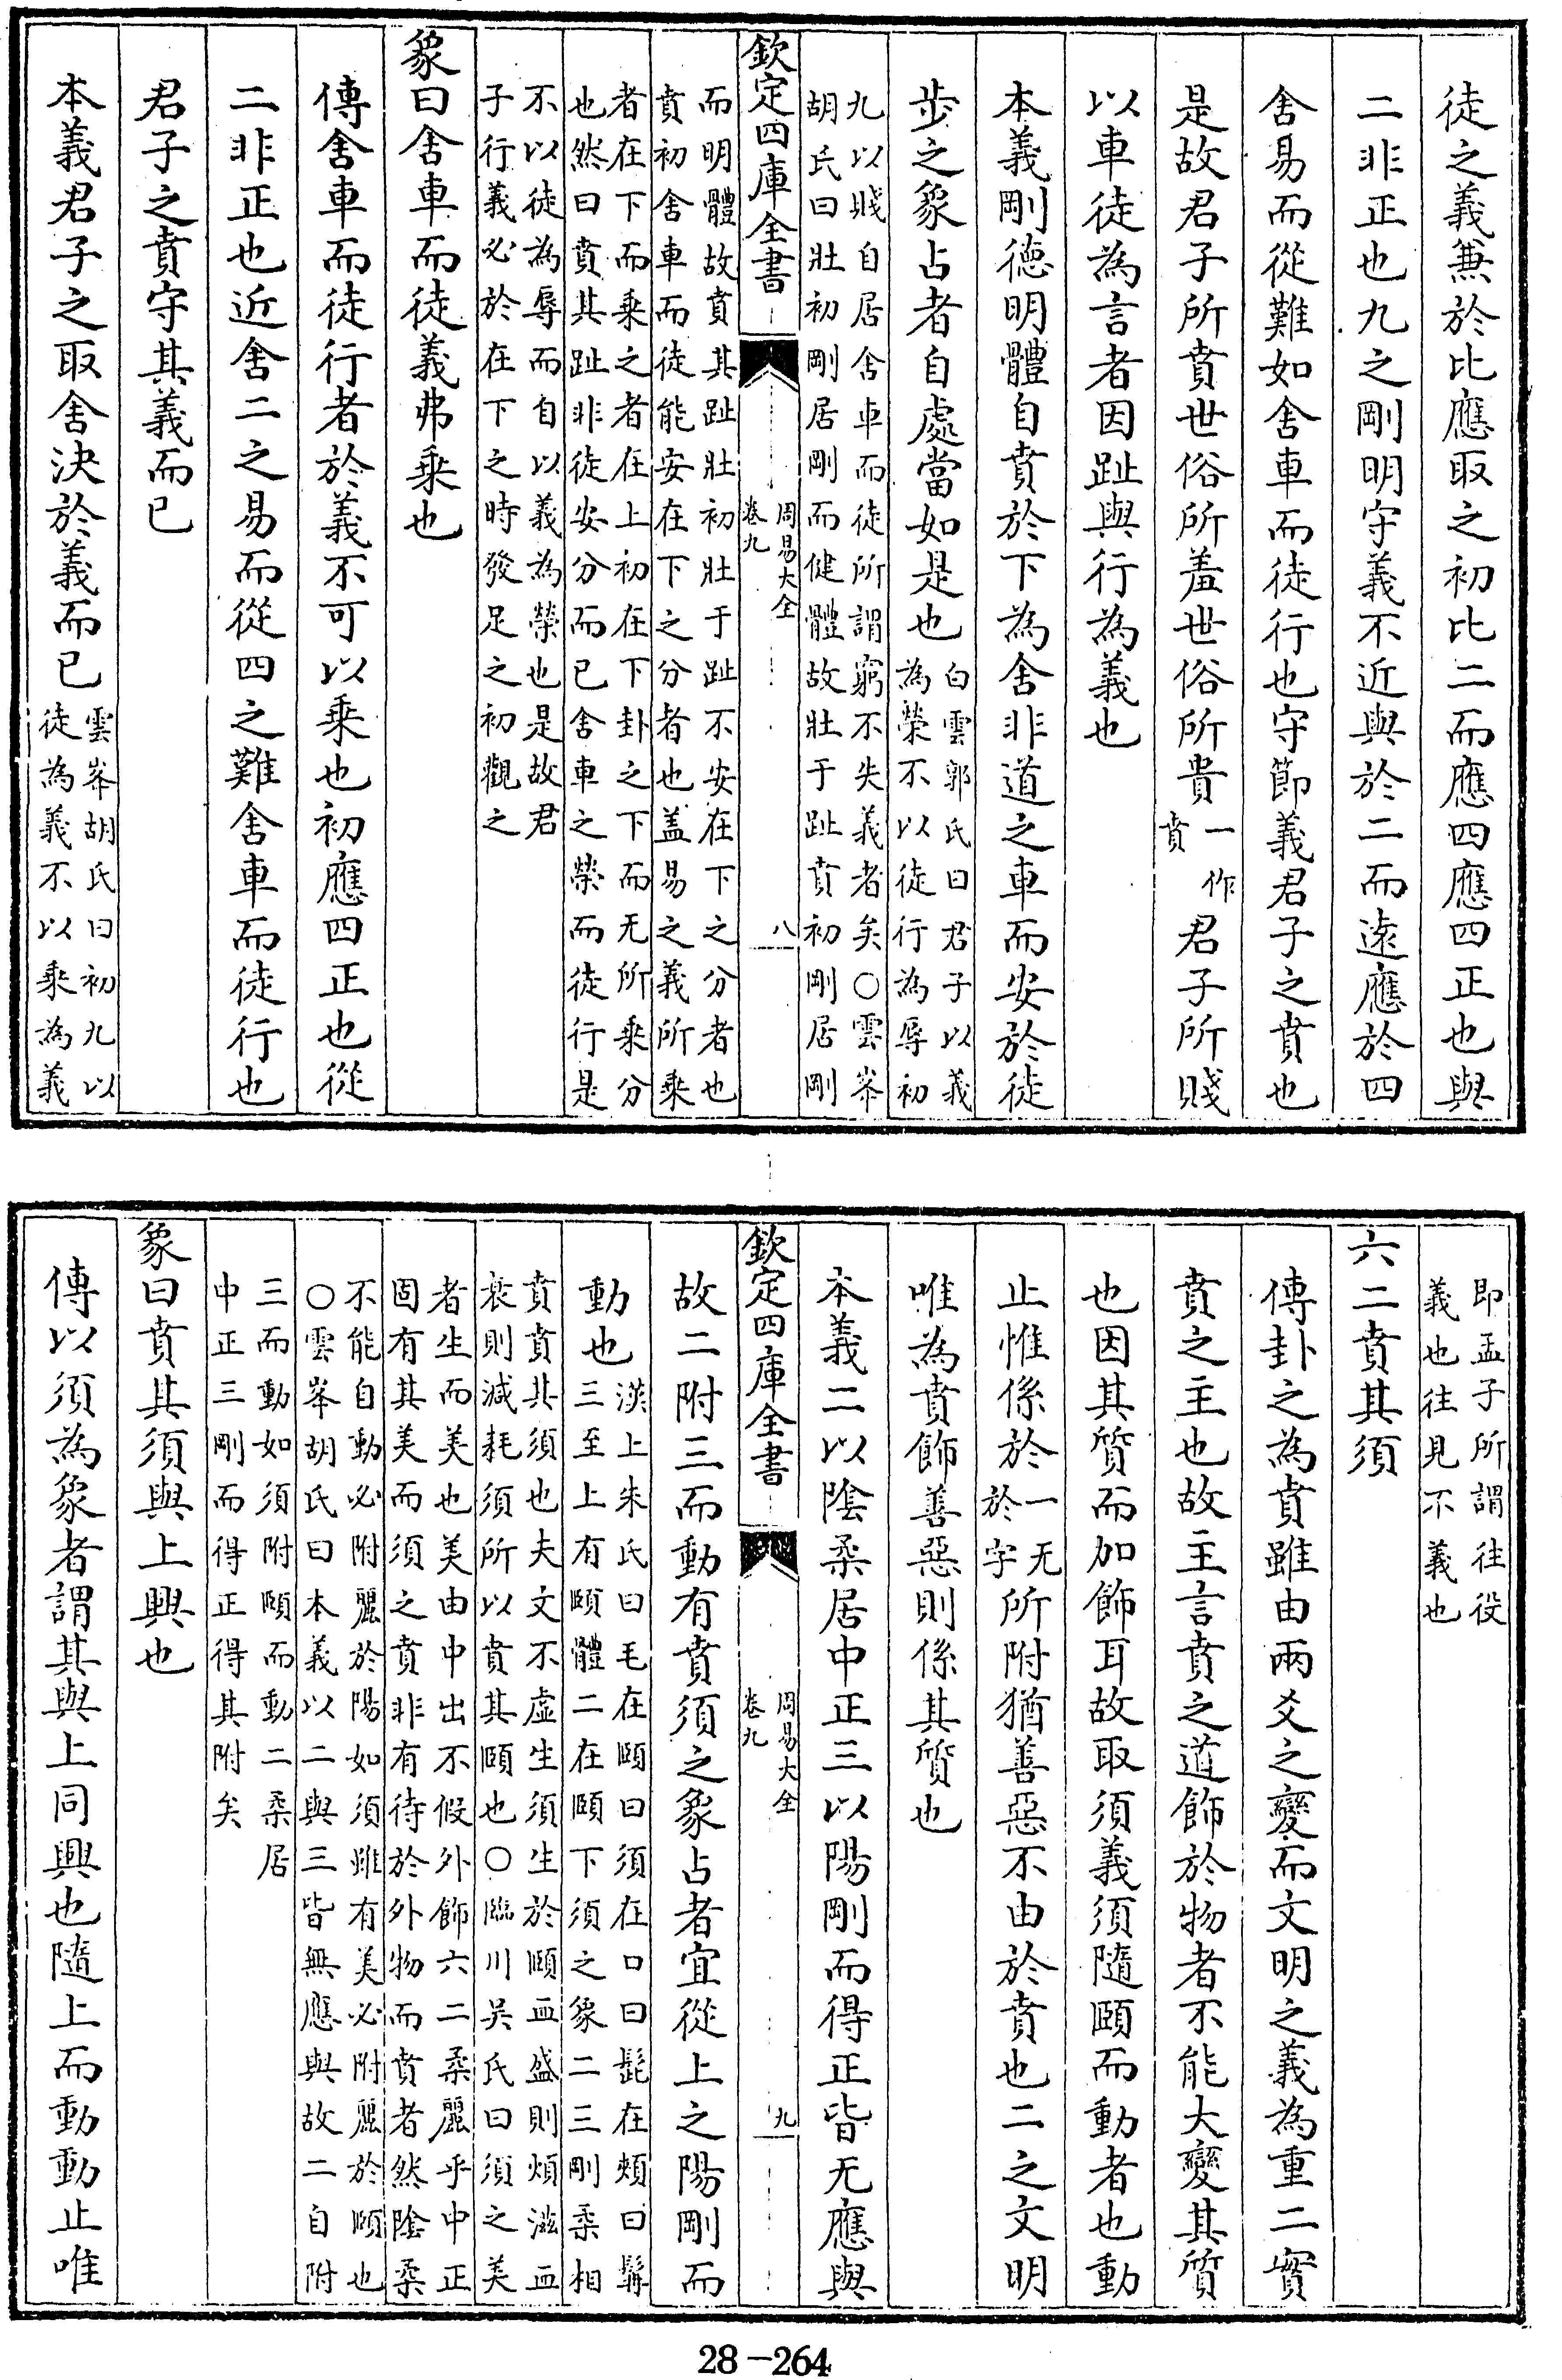 徒之義兼於比應取之初比二而應四應四正也與
二非正也九之剛明守義不近與於二而遠應於四
舍易而從難如舍車而徒行也守節義君子之賁也
是故君子所賁世俗所羞世俗所貴一作賁君子所賤
以車徒為言者因趾與行為義也
本義剛德明體自賁於下為舍非道之車而安於徒
步之象占者自處當如是也白雲郭氏曰君子以義
為榮不以徒行為辱初
九以賤自居舍車而徒所謂窮不失義者矣○雲峯
胡氏曰壯初剛居剛而健體故壯于趾賁初剛居剛
欽定四庫全書
周易大全
卷九
八
而明體故賁其趾壯初壯于趾不安在下之分者也
賁初舍車而徒能安在下之分者也盖易之義所乘
者在下而乘之者在上初在下卦之下而无所乘分
也然曰賁其趾非徒安分而已舍車之榮而徒行是
不以徒為辱而自以義為榮也是故君
子行義必於在下之時發足之初觀之
象曰舍車而徒義弗乘也
傳舍車而徒行者於義不可以乘也初應四正也從
二非正也近舍二之易而從四之難舍車而徒行也
君子之賁守其義而已
本義君子之取舍決於義而已雲峯胡氏曰初九以
徒為義不以乘為義
即孟子所謂往役
義也往見不義也
六二賁其須
傳卦之為賁雖由兩爻之變而文明之義為重二實
賁之主也故主言賁之道飾於物者不能大變其質
也因其質而加飾耳故取須義須隨頤而動者也動
止惟係於一无於字所附猶善惡不由於賁也二之文明
唯為賁飾善惡則係其質也
本義二以陰柔居中正三以陽剛而得正皆无應與
欽定四庫全書
周易大全
卷九
九
故二附三而動有賁須之象占者宜從上之陽剛而
動也漢上朱氏曰毛在頤曰須在口曰髭在頰曰髯
三至上有頤體二在頤下須之象二三剛柔相
賁賁其須也夫文不虛生須生於頤血盛則煩滋血
衰則減耗須所以賁其頤也○臨川吳氏曰須之美
者生而美也美由中出不假外飾六二柔麗乎中正
固有其美而須之賁非有待於外物而賁者然陰柔
不能自動必附麗於陽如須雖有美必附麗於頤也
○雲峯胡氏曰本義以二與三皆無應與故二自附
三而動如須附頤而動二柔居
中正三剛而得正得其附矣
象曰賁其須與上興也
傳以須為象者謂其與上同興也隨上而動動止唯
28-264